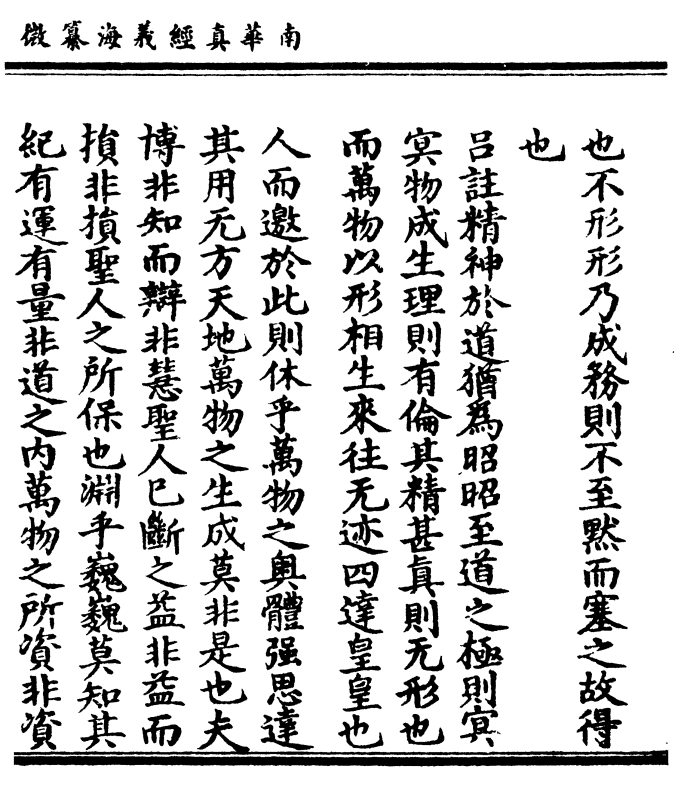 南華真經義海纂微
也不形形乃成務則不至黙而塞之故得
也
吕註精神於道猶爲昭昭至道之極則冥
冥物成生理則有倫其精甚眞則无形也
而萬物以形相生來往无迹四達皇皇也
人而邀於此則休乎萬物之奥體强思達
其用无方天地萬物之生成莫非是也夫
博非知而辯非慧聖人已斷之益非益而
損非損聖人之所保也淵乎巍巍莫知其
紀有運有量非道之内萬物之所資非資